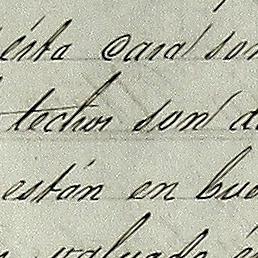 ésta casa son
techos son d
están en bue
valuada é